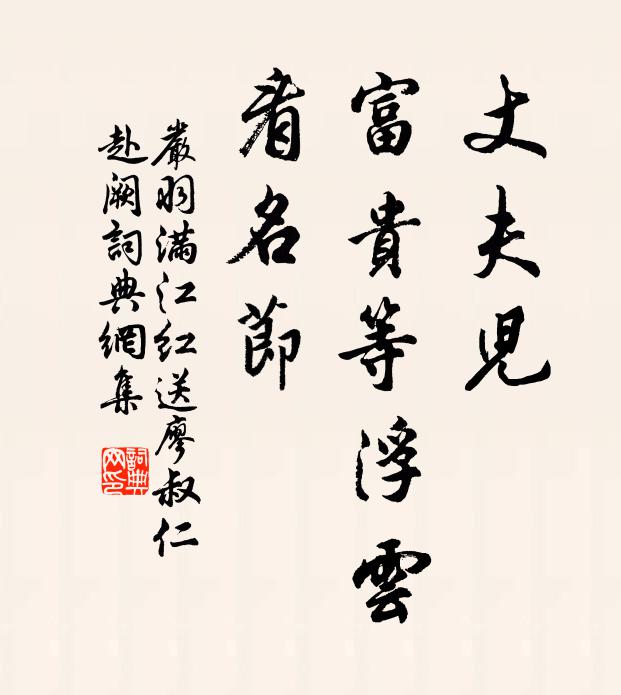 丈夫児
富貴等浮雲
看名節
嚴羽滿江红送廖叔仁
赴闕詞典網集
詞典网印